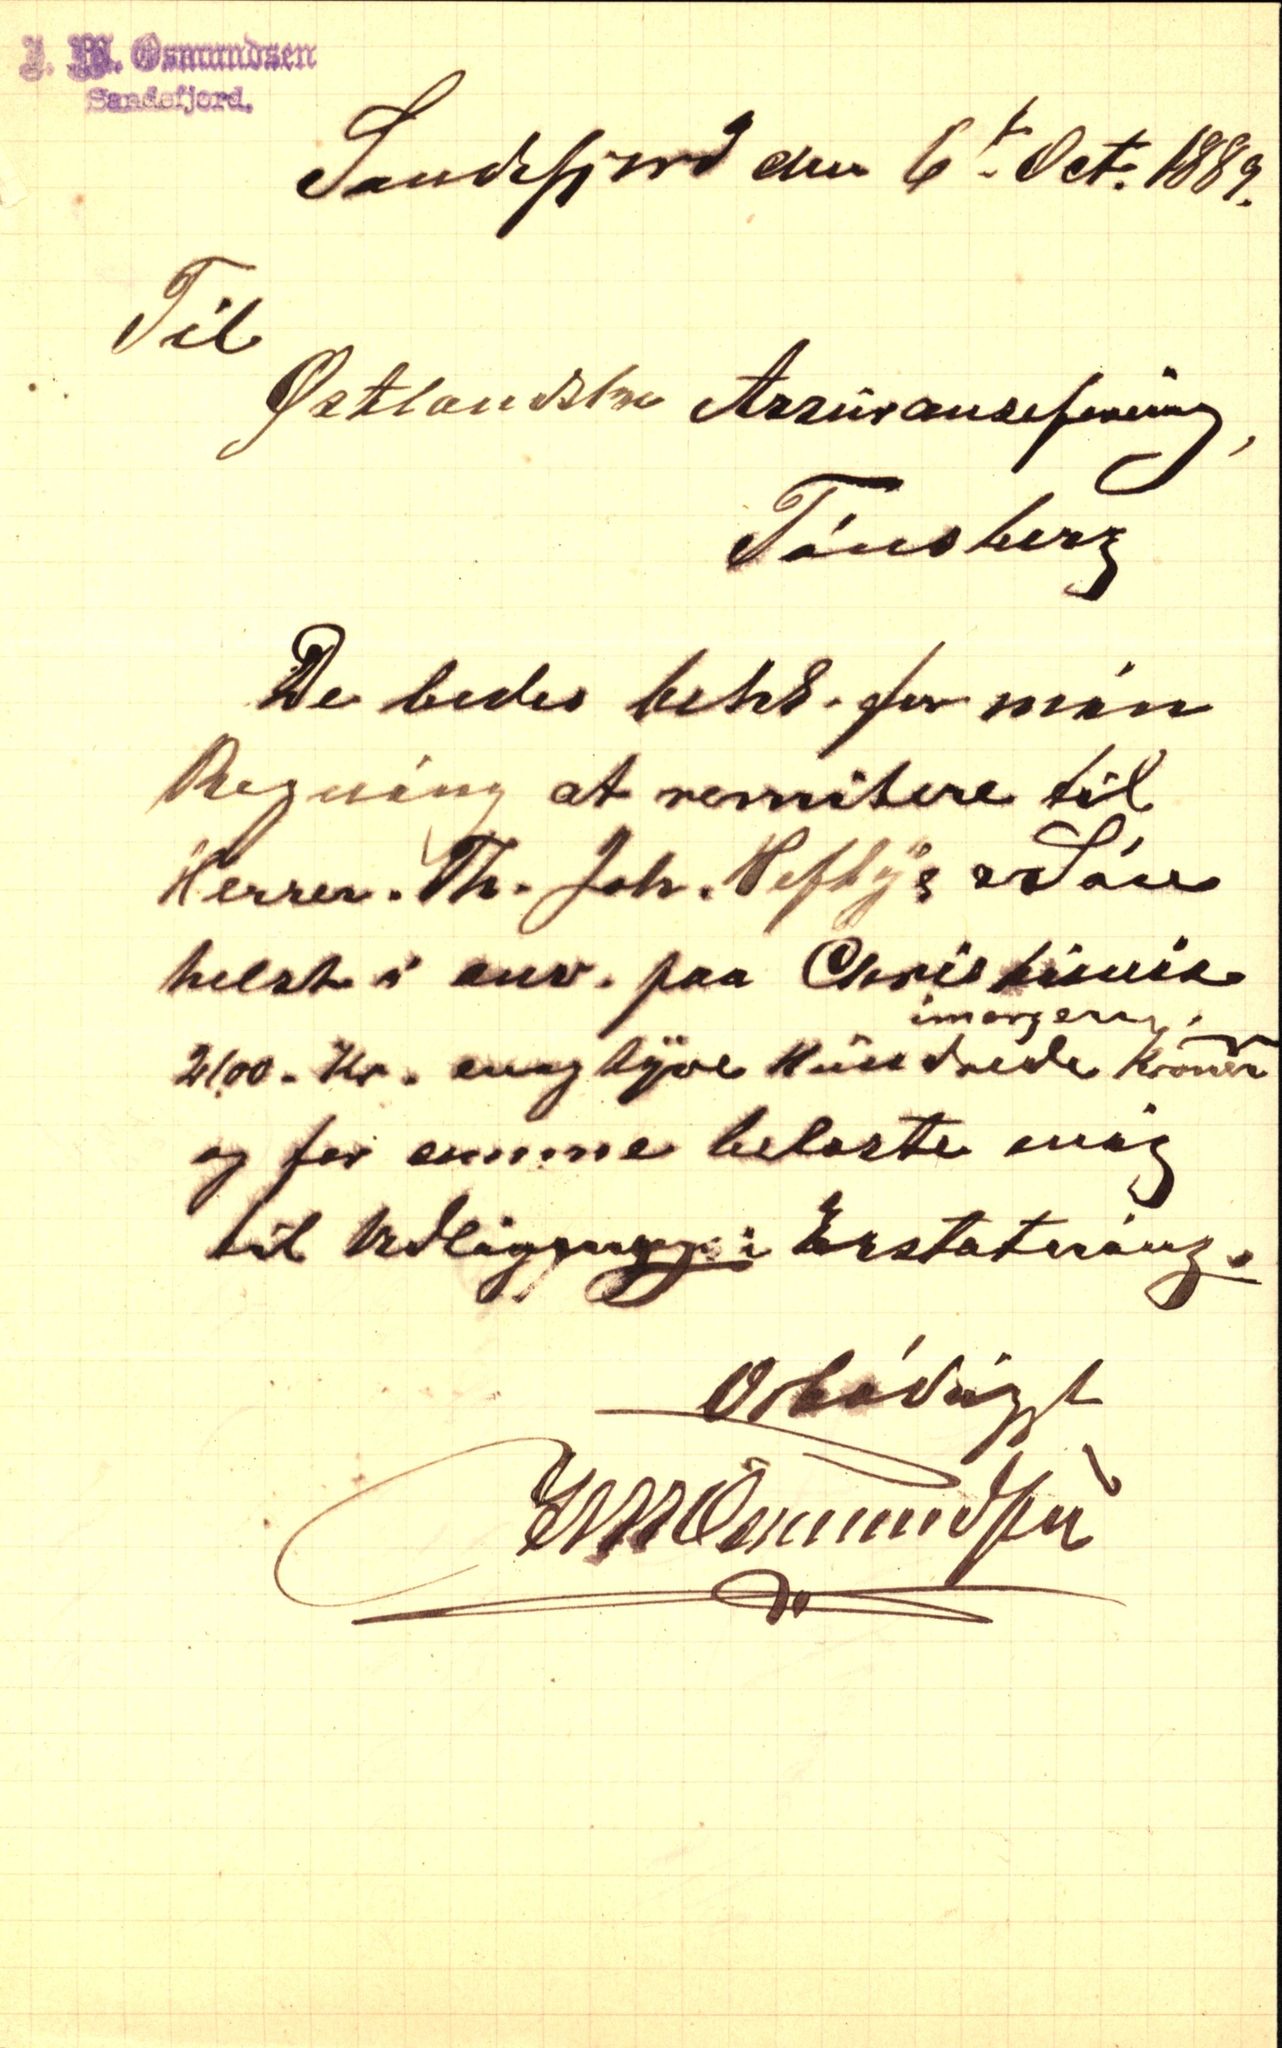 J. M. Osmundsen
Sandefjord.
Sandefjord den 6t. Oct. 1889.
Til
Østlandske Assuranseforening,
Tönsberg
De bedes behd. for min
Regning at remitere til
Herrer. Th. Joh. Heftÿe & Sön
helst i anv. paa Christiania
imorgen,
2100. Kr. enogtÿve Hundrede Kroner
og for summe belaste mig
til Udligning i Erstatning.
Ærbödigst
JMOsmundsen